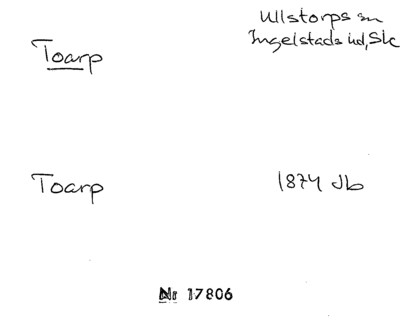 Toarp
Ullstorps sn
Ingelstads hd, Sk
Toarp
1874 Jb
Nr 17806